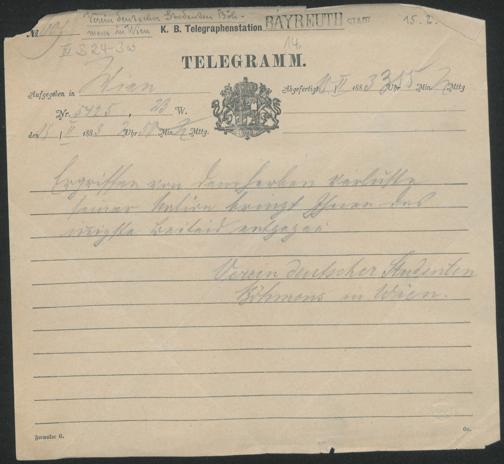 Verein deutscher Studenten Böh-
mens in Wien
No. K. B. Telegraphenstation BAYREUTH STADT 15. 2.
VI B 24-3w 14.
TELEGRAMM.
Aufgegeben in Wien Abgefertigt II 1883 3 Uhr 15 Min Mttg
Nr. 5425, 23 W.
den 15, II 1883 2 Uhr Min Mttg.
Ergriffen von dem herben Verluste
seiner Nation bringt Ihnen das
innigste Beileid entgegen
Verein deutscher Studenten
Böhmens in Wien.
Formular G.